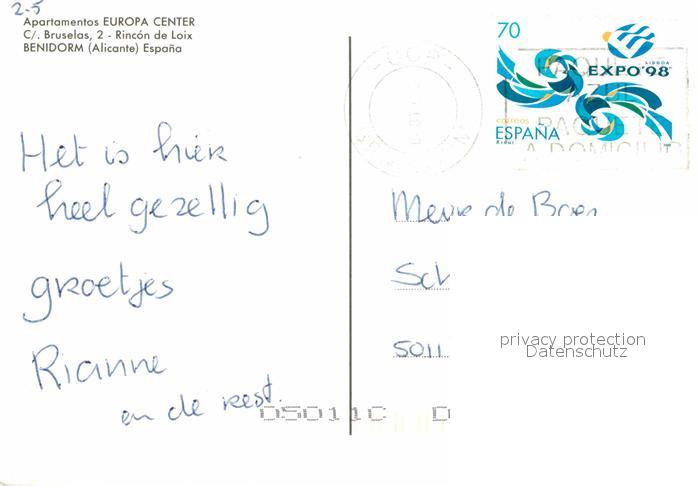 2-5
Apartamentos EUROPA CENTER
C/. Bruselas, 2 - Rincón de Loix
BENIDORM (Alicante) España
Het is hier
heel gezellig
groetjes
Rianne
en de rest.
70
LISBOA
EXPO'98
CORREOS
ESPAÑA
PAQUET
A DOMICILIO
Mevr de Boer
Sch
5011
privacy protection
Datenschutz
05011C D